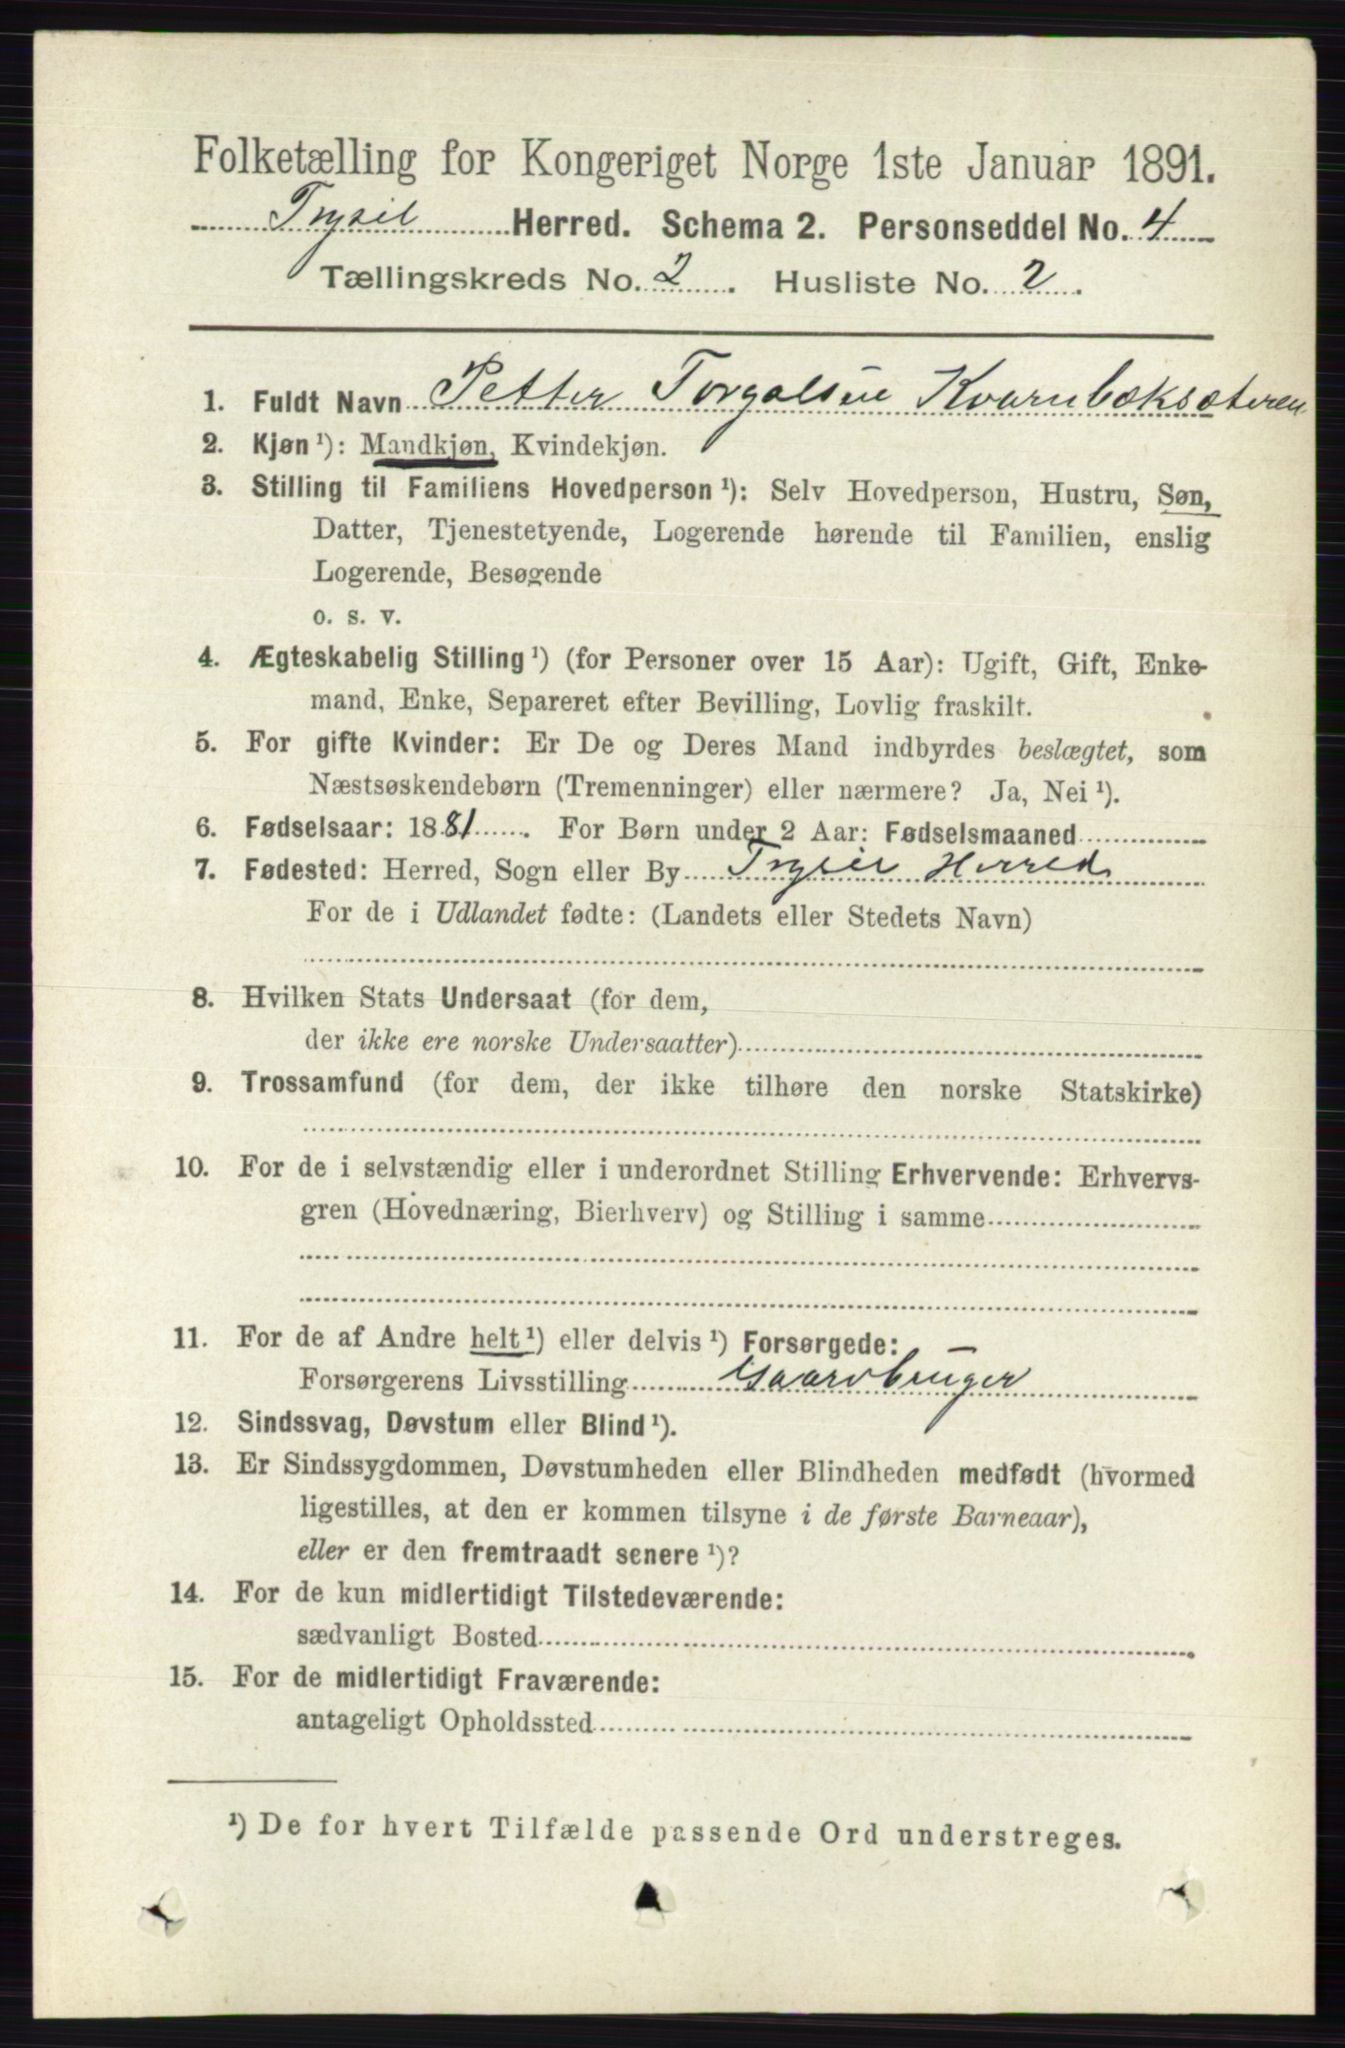 Folketælling for Kongeriget Norge 1ste Januar 1891.
Trysil Herred. Schema 2. Personseddel No. 4
Tællingskreds No. 2. Husliste No. 2.
1. Fuldt Navn Petter Torgalsen Kvarnbæksæteren
2. Kjøn ¹): Mandkjøn, Kvindekjøn.
3. Stilling til Familiens Hovedperson ¹): Selv Hovedperson, Hustru, Søn,
Datter, Tjenestetyende, Logerende hørende til Familien, enslig
Logerende, Besøgende
o. s. v.
4. Ægteskabelig Stilling ¹) (for Personer over 15 Aar): Ugift, Gift, Enke-
mand, Enke, Separeret efter Bevilling, Lovlig fraskilt.
5. For gifte Kvinder: Er De og Deres Mand indbyrdes beslægtet, som
Næstsøskendebørn (Tremenninger) eller nærmere? Ja, Nei ¹).
6. Fødselsaar: 1881. For Børn under 2 Aar: Fødselsmaaned
7. Fødested: Herred, Sogn eller By Trysil Herred
For de i Udlandet fødte: (Landets eller Stedets Navn)
8. Hvilken Stats Undersaat (for dem,
der ikke ere norske Undersaatter)
9. Trossamfund (for dem, der ikke tilhøre den norske Statskirke)
10. For de i selvstændig eller i underordnet Stilling Erhvervende: Erhvervs-
gren (Hovednæring, Bierhverv) og Stilling i samme
11. For de af Andre helt ¹) eller delvis ¹) Forsørgede:
Forsørgerens Livsstilling Gaardbruger
12. Sindssvag, Døvstum eller Blind ¹).
13. Er Sindssygdommen, Døvstumheden eller Blindheden medfødt (hvormed
ligestilles, at den er kommen tilsyne i de første Barneaar),
eller er den fremtraadt senere ¹)?
14. For de kun midlertidigt Tilstedeværende:
sædvanligt Bosted
15. For de midlertidigt Fraværende:
antageligt Opholdssted
¹) De for hvert Tilfælde passende Ord understreges.